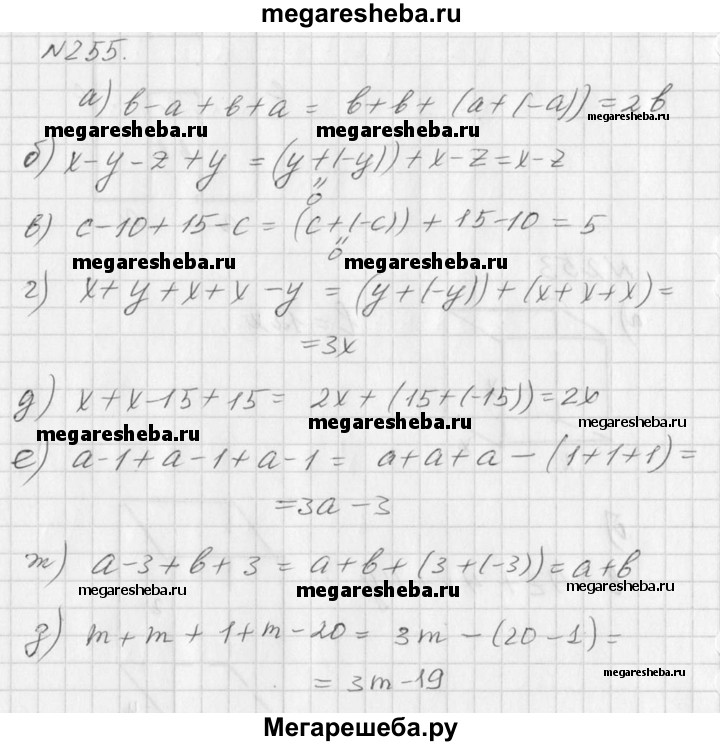 megaresheba.ru
№255.
а) b-a+b+a = b+b+(a+(-a))=2b
megaresheba.ru megaresheba.ru megaresheba.ru
б) x-y-z+y = (y+(-y))+x-z=x-z
"
0
в) c-10+15-c = (c+(-c))+15-10=5
"
0
megaresheba.ru megaresheba.ru
г) x+y+x+x-y = (y+(-y))+(x+x+x)=
=3x
д) x+x-15+15= 2x+(15+(-15))=2x
megaresheba.ru megaresheba.ru megaresheba.ru
е) a-1+a-1+a-1 = a+a+a-(1+1+1)=
=3a-3
ж) a-3+b+3 = a+b+(3+(-3))=a+b
megaresheba.ru megaresheba.ru megaresheba.ru
з) m+m+1+m-20= 3m-(20-1)=
= 3m-19
megaresheba.ru
Мегарешеба.ру